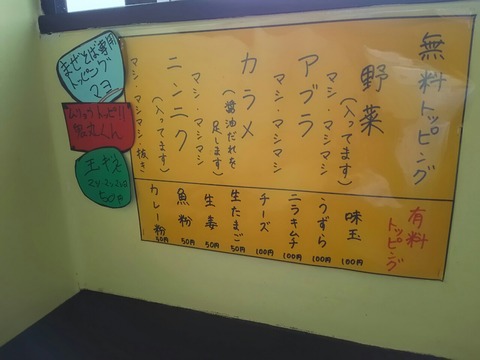 無料トッピング
野菜
(入ってます)
マシ・マシマシ
アブラ
マシ・マシマシ
カラメ
(醤油だれを
足します)
ニンニク
(入ってます)
マシ・マシマシ
マシ・マシマシ 抜き
有料
トッピング
味玉 100円
うずら 100円
ニラキムチ 100円
チーズ 100円
生たまご 50円
生姜 50円
魚粉 50円
カレー粉 50円
まぜそば専用
トッピング
マヨ
50円